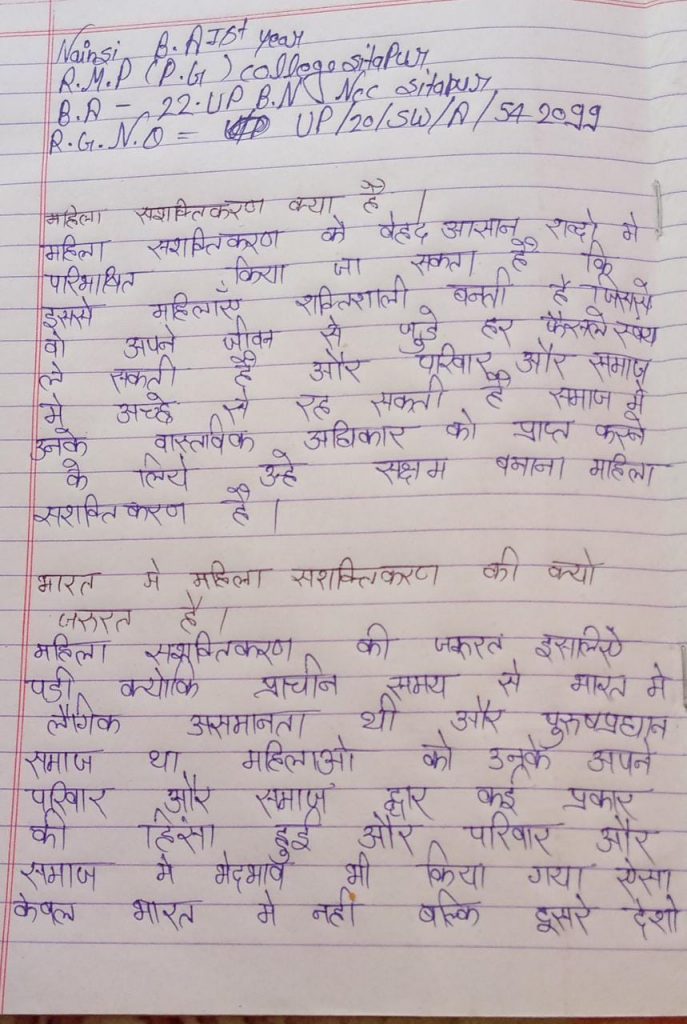 Nainsi B.A Ist year
R.M.P (P.G) college sitapur
B.A - 22. UP B.N Ncc sitapur
R.G.N.O = UP/20/SW/A/54 2099
महिला सशक्तिकरण क्या है ।
महिला सशक्तिकरण को बेहद आसान शब्दो मे
परिभाषित किया जा सकता है कि
इससे महिलाएँ शक्तिशाली बनती है जिससे
वो अपने जीवन से जुडे हर फैसले स्वय
ले सकती है और परिवार और समाज
मे अच्छे से रह सकती है समाज में
उनके वास्तविक अधिकार को प्राप्त करने
के लिये उन्हे सक्षम बनाना महिला
सशक्तिकरण है ।
भारत मे महिला सशक्तिकरण की क्यो
जरुरत है ।
महिला सशक्तिकरण की जरूरत इसलिये
पडी क्योकि प्राचीन समय से भारत मे
लैगिक असमानता थी और पुरुषप्रधान
समाज था महिलाओ को उनके अपने
परिवार और समाज द्वार कई प्रकार
की हिंसा हुई और परिवार और
समाज मे भेदभाव भी किया गया ऐसा
केवल भारत मे नही बल्कि दूसरे देशो